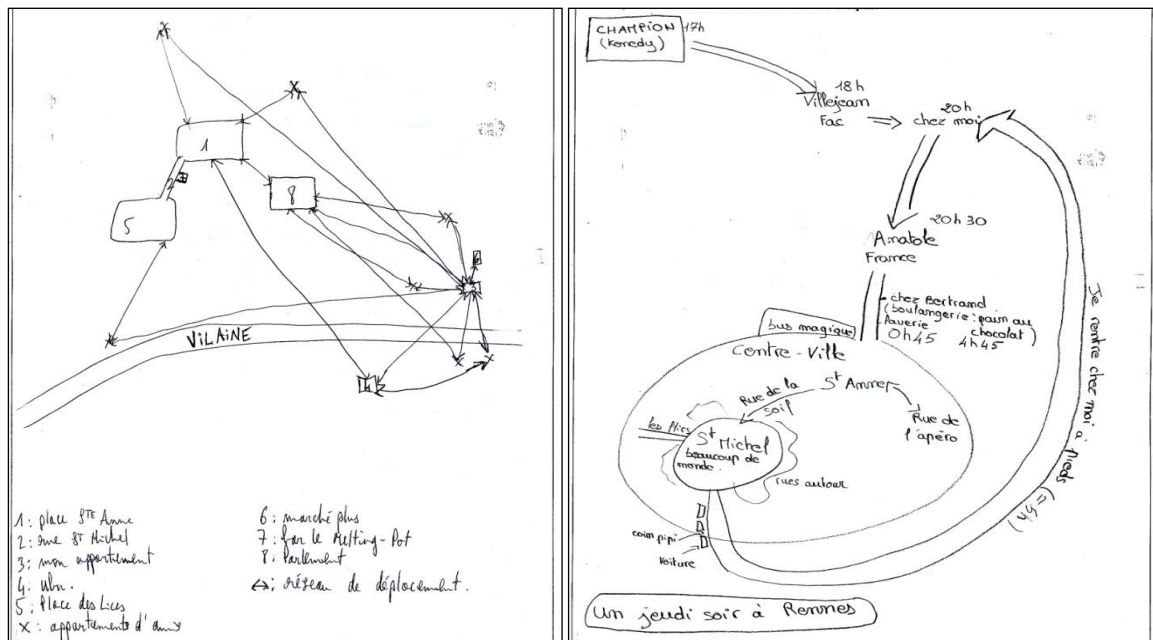 1
2
5
8
VILAINE
1: place STE Anne
2: rue ST Michel
3: mon appartement
4: Ubu.
5: Place des Lices
X: appartements d'amis
6: marché plus
7: bar le Melting-Pot
8: Parlement
↔: réseau de déplacement.
CHAMPION
(Kenedy)
17h
18h
Villejean
Fac
20h
chez moi
20h30
Anatole
France
chez Bertrand
(boulangerie: pain au
chocolat)
0h45
4h45
bus magique
Centre-Ville
St Anne
Rue de la
soif
Rue de
l'apéro
les flics
St Michel
beaucoup de
monde.
rues autour
coin pipi
Voiture
Je rentre chez moi à pieds
Un jeudi soir à Rennes